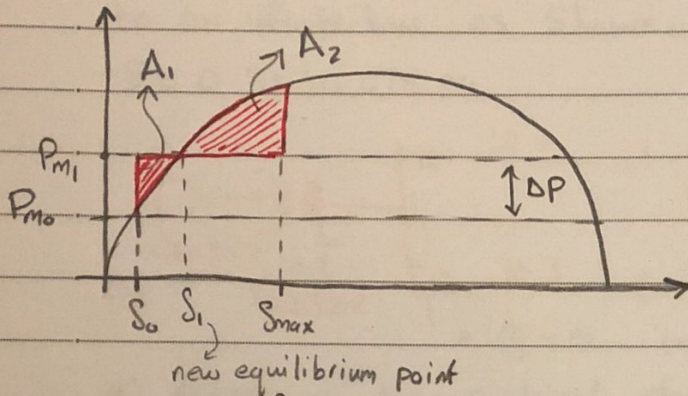 A₁
A₂
Pm₁
Pm₀
ΔP
δ₀ δ₁ δmax
new equilibrium point